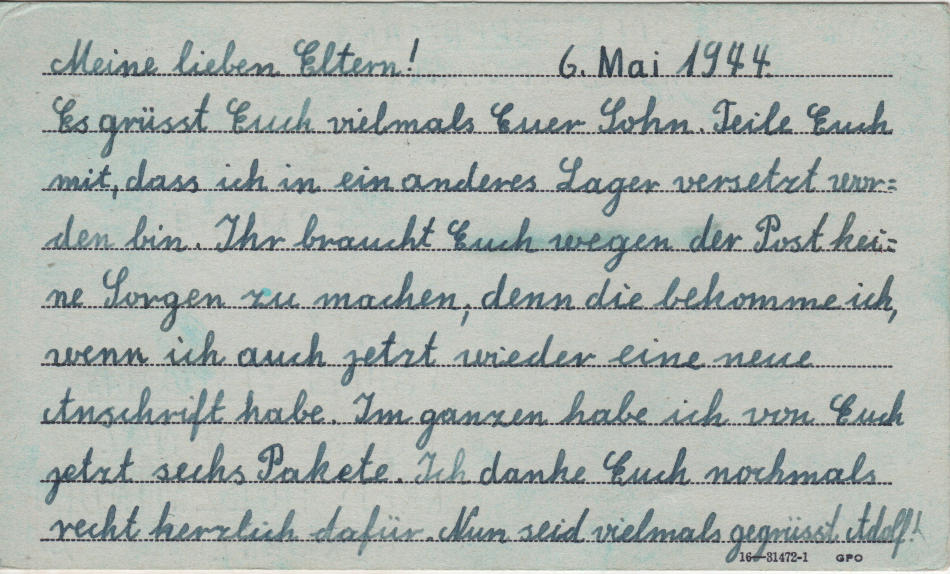 Meine lieben Eltern! 6. Mai 1944.
Es grüsst Euch vielmals Euer Sohn. Teile Euch
mit, dass ich in ein anderes Lager versetzt wor=
den bin. Ihr braucht Euch wegen der Post kei=
ne Sorgen zu machen, denn die bekomme ich,
wenn ich auch jetzt wieder eine neue
Anschrift habe. Im ganzen habe ich von Euch
jetzt sechs Pakete. Ich danke Euch nochmals
recht herzlich dafür. Nun seid vielmals gegrüsst Adolf!
16—31472-1 GPO